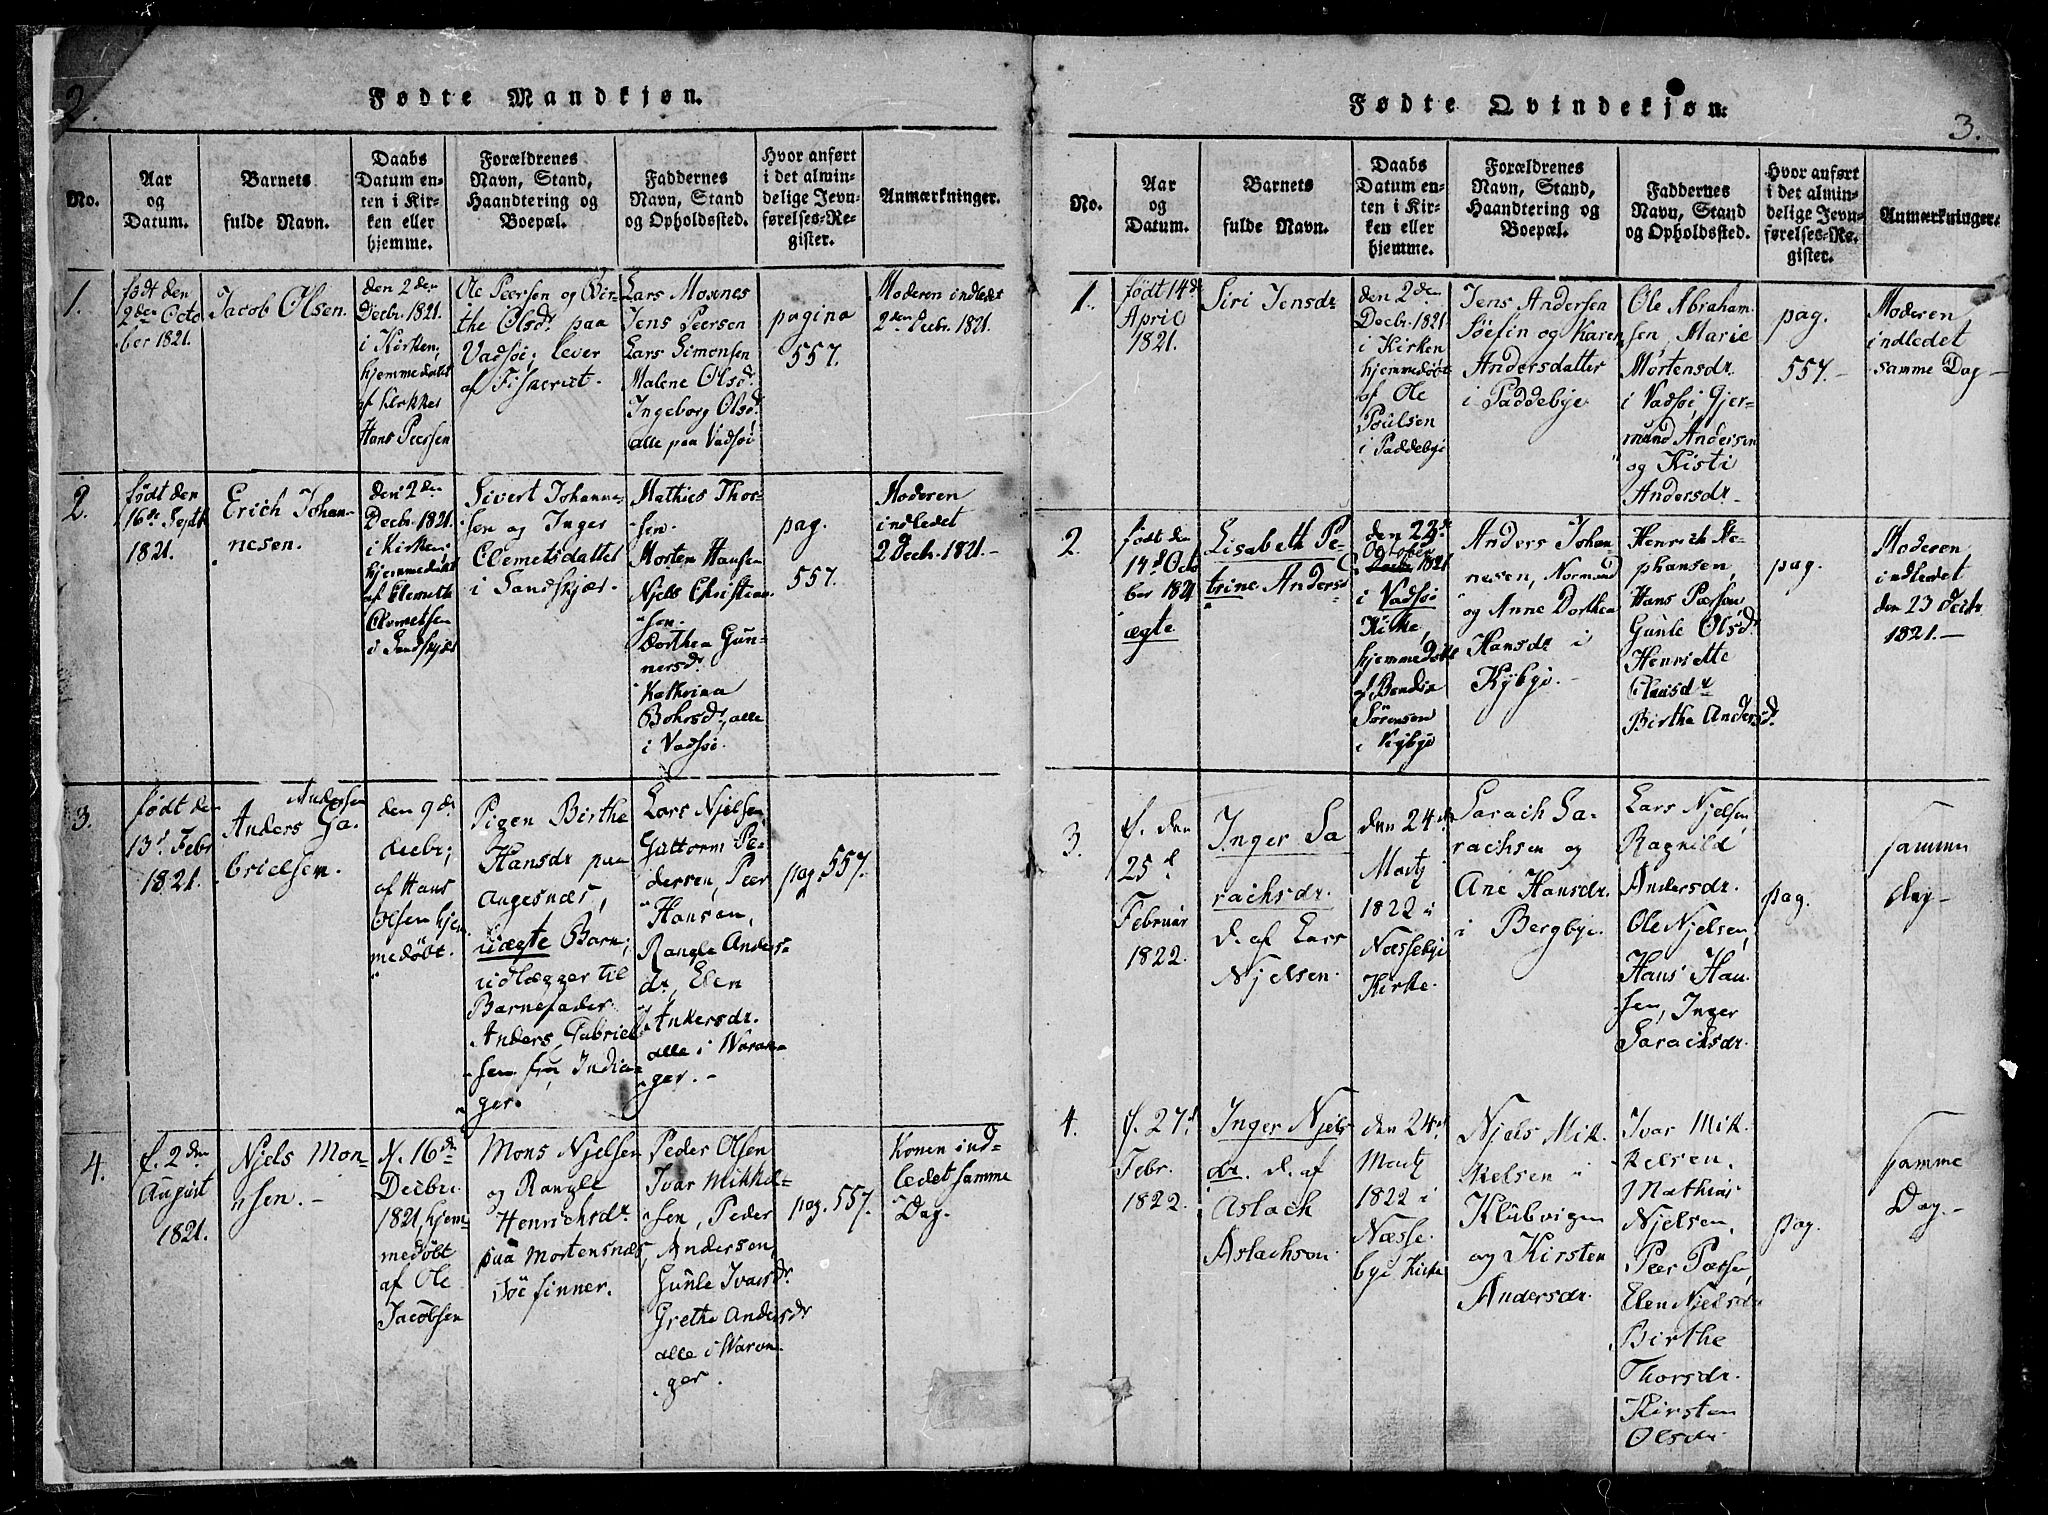 2.
Fødte Mandkjøn.
No.
Aar
og
Datum.
Barnets
fulde Navn.
Daabs
Datum en-
ten i Kir-
ken eller
hjemme.
Forældrenes
Navn, Stand,
Haandtering og
Boepæl.
Faddernes
Navn, Stand
og Opholdssted.
Hvor anført
i det almin-
delige Jevn-
førelses-Re-
gister.
Anmærkninger.
1.
født den
2den Octo
ber 1821.
Jacob Olsen.
den 2den
Decbr. 1821.
i Kirken,
hjemmedøbt
af Klokker
Hans Peersen
Ole Peersen og Bir-
the Olsdr. paa
Vadsøi; lever
af Fiskeriet.
Lars Moxnes
Jens Peersen
Lars Simonsen
Malene Olsdr.
Ingeborg Olsdr.
alle paa Vadsøi
pagina
557.
Moderen indledet
2den Decbr. 1821.
2.
født den
16de Septbr
1821.
Erich Johan-
nesen.
den 2den
Decbr. 1821.
i Kirken;
hjemmedøbt
af Clemeth
Clemetsen
i Sandskjær
Sivert Johanne-
sen og Inger
Clemetsdatter
i Sandskjær.
Mathies Thor-
sen.
Morten Hansen
Njels Christian-
sen.
Dorthea Gun-
nersdr.
Kathrina
Bohrsdr, alle
i Vadsøi.
pag.
557.
Moderen
indledet
2 Decbr. 1821.-
3.
født den
13d Febr
1821.
Andersen
Anders Ga-
brielsen.
den 9de
decbr;
af Hans
Olsen hjem
medøbt.
Pigen Birthe
Hansdr paa
Angesnæs,
uægte Barn;
udlægger til
Barnefader
Anders Gabriel-
sen fra India-
ger.
Lars Njelsen,
Guttorm Pe-
dersen, Peer
Hansen,
Rangle Anders-
dr, Elen
Ankersdr.
alle i Waran-
ger.-
pag. 557.
4.
f. 2den
August
1821.
Njels Mon-
sen.-
N. 16de
Decbr.
1821, hjem-
medøbt
af Ole
Jacobsen
Mons Njelsen
og Rangle
Henrichsdr.
paa Mortensnæs,
Søe finner.
Peder Olsen
Ivar Mikkel-
sen, Peder
Andersen,
Gunle Ivarsdr.
Grethe Andersdr
alle i Waran-
ger.
pag. 557.
Konen ind-
ledet samme
Dag.
Fødte Qvindekjøn.
3.
No.
Aar
og
Datum.
Barnets
fulde Navn.
Daabs
Datum en-
ten i Kir-
ken eller
hjemme.
Forældrenes
Navn, Stand,
Haandtering og
Boepæl.
Faddernes
Navn, Stand
og Opholdssted.
Hvor anført
i det almin-
delige Jevn-
førelses-Re-
gister.
Anmærkninger.
1.
født 14de
April
1821.
Siri Jensdr
den 2den
Decbr. 1821
i Kirken
hjemmedøbt
af Ole
Poulsen
i Paddebye
Jens Andersen
Søefin og Karen
Andersdatter
i Paddebye
Ole Abraham-
sen, Marie
Mortensdr.
i Vadsøi, Gjer-
mund Andersen
og Kisti
Andersdr.
pag.
557.-
Moderen
indledet
samme Dag -
2.
født den
14d Octo
ber 1821
ægte
Lisabeth Pe-
trine Andersdr
den 23de
October
Decbr. 1821
i Vadsøi
Kirke,
hjemmedøbt
af Bendix
Sørensen
i Kybye
Anders Johan
nesen, Normand
og Anne Dorthea
Hansdr i
Kybye.
Henrich Ste-
phansen,
Hans Peersen,
Gunle Olsdr.
Henriette
Clausdr
Birthe Andersdr.
pag.
Moderen
indledet
den 23 Decbr
1821.-
3.
f. den
25d
Februar
1822.
Inger Sa
rachsdr.
d. af Lars
Njelsen.
den 24de
Martz
1822 i
Næssebye
Kirke.
Sarach Sa-
rachsen og
Ane Hansdr.
i Bergbye.
Lars Njelsen
Ragnild
Andersdr.
Ole Njelsen,
Hans Han-
sen, Inger
Sarachsdr.
pag.
samme
dag-
4.
f. 27d
Febr.
1822.
Inger Njels
dr. d. af
Aslach
Aslachsen
den 24de
Martz
1822 i
Næsse-
bye Kirke
Njels Mik-
kelsen i
Klubvigen
og Kirsten
Andersdr.
Ivar Mik-
kelsen.
Mathias
Njelsen.
Peer Peersen,
Elen Njelsdr
Birthe
Thorsdr.
Kirsten
Olsdr.
pag.
samme
Dag.-